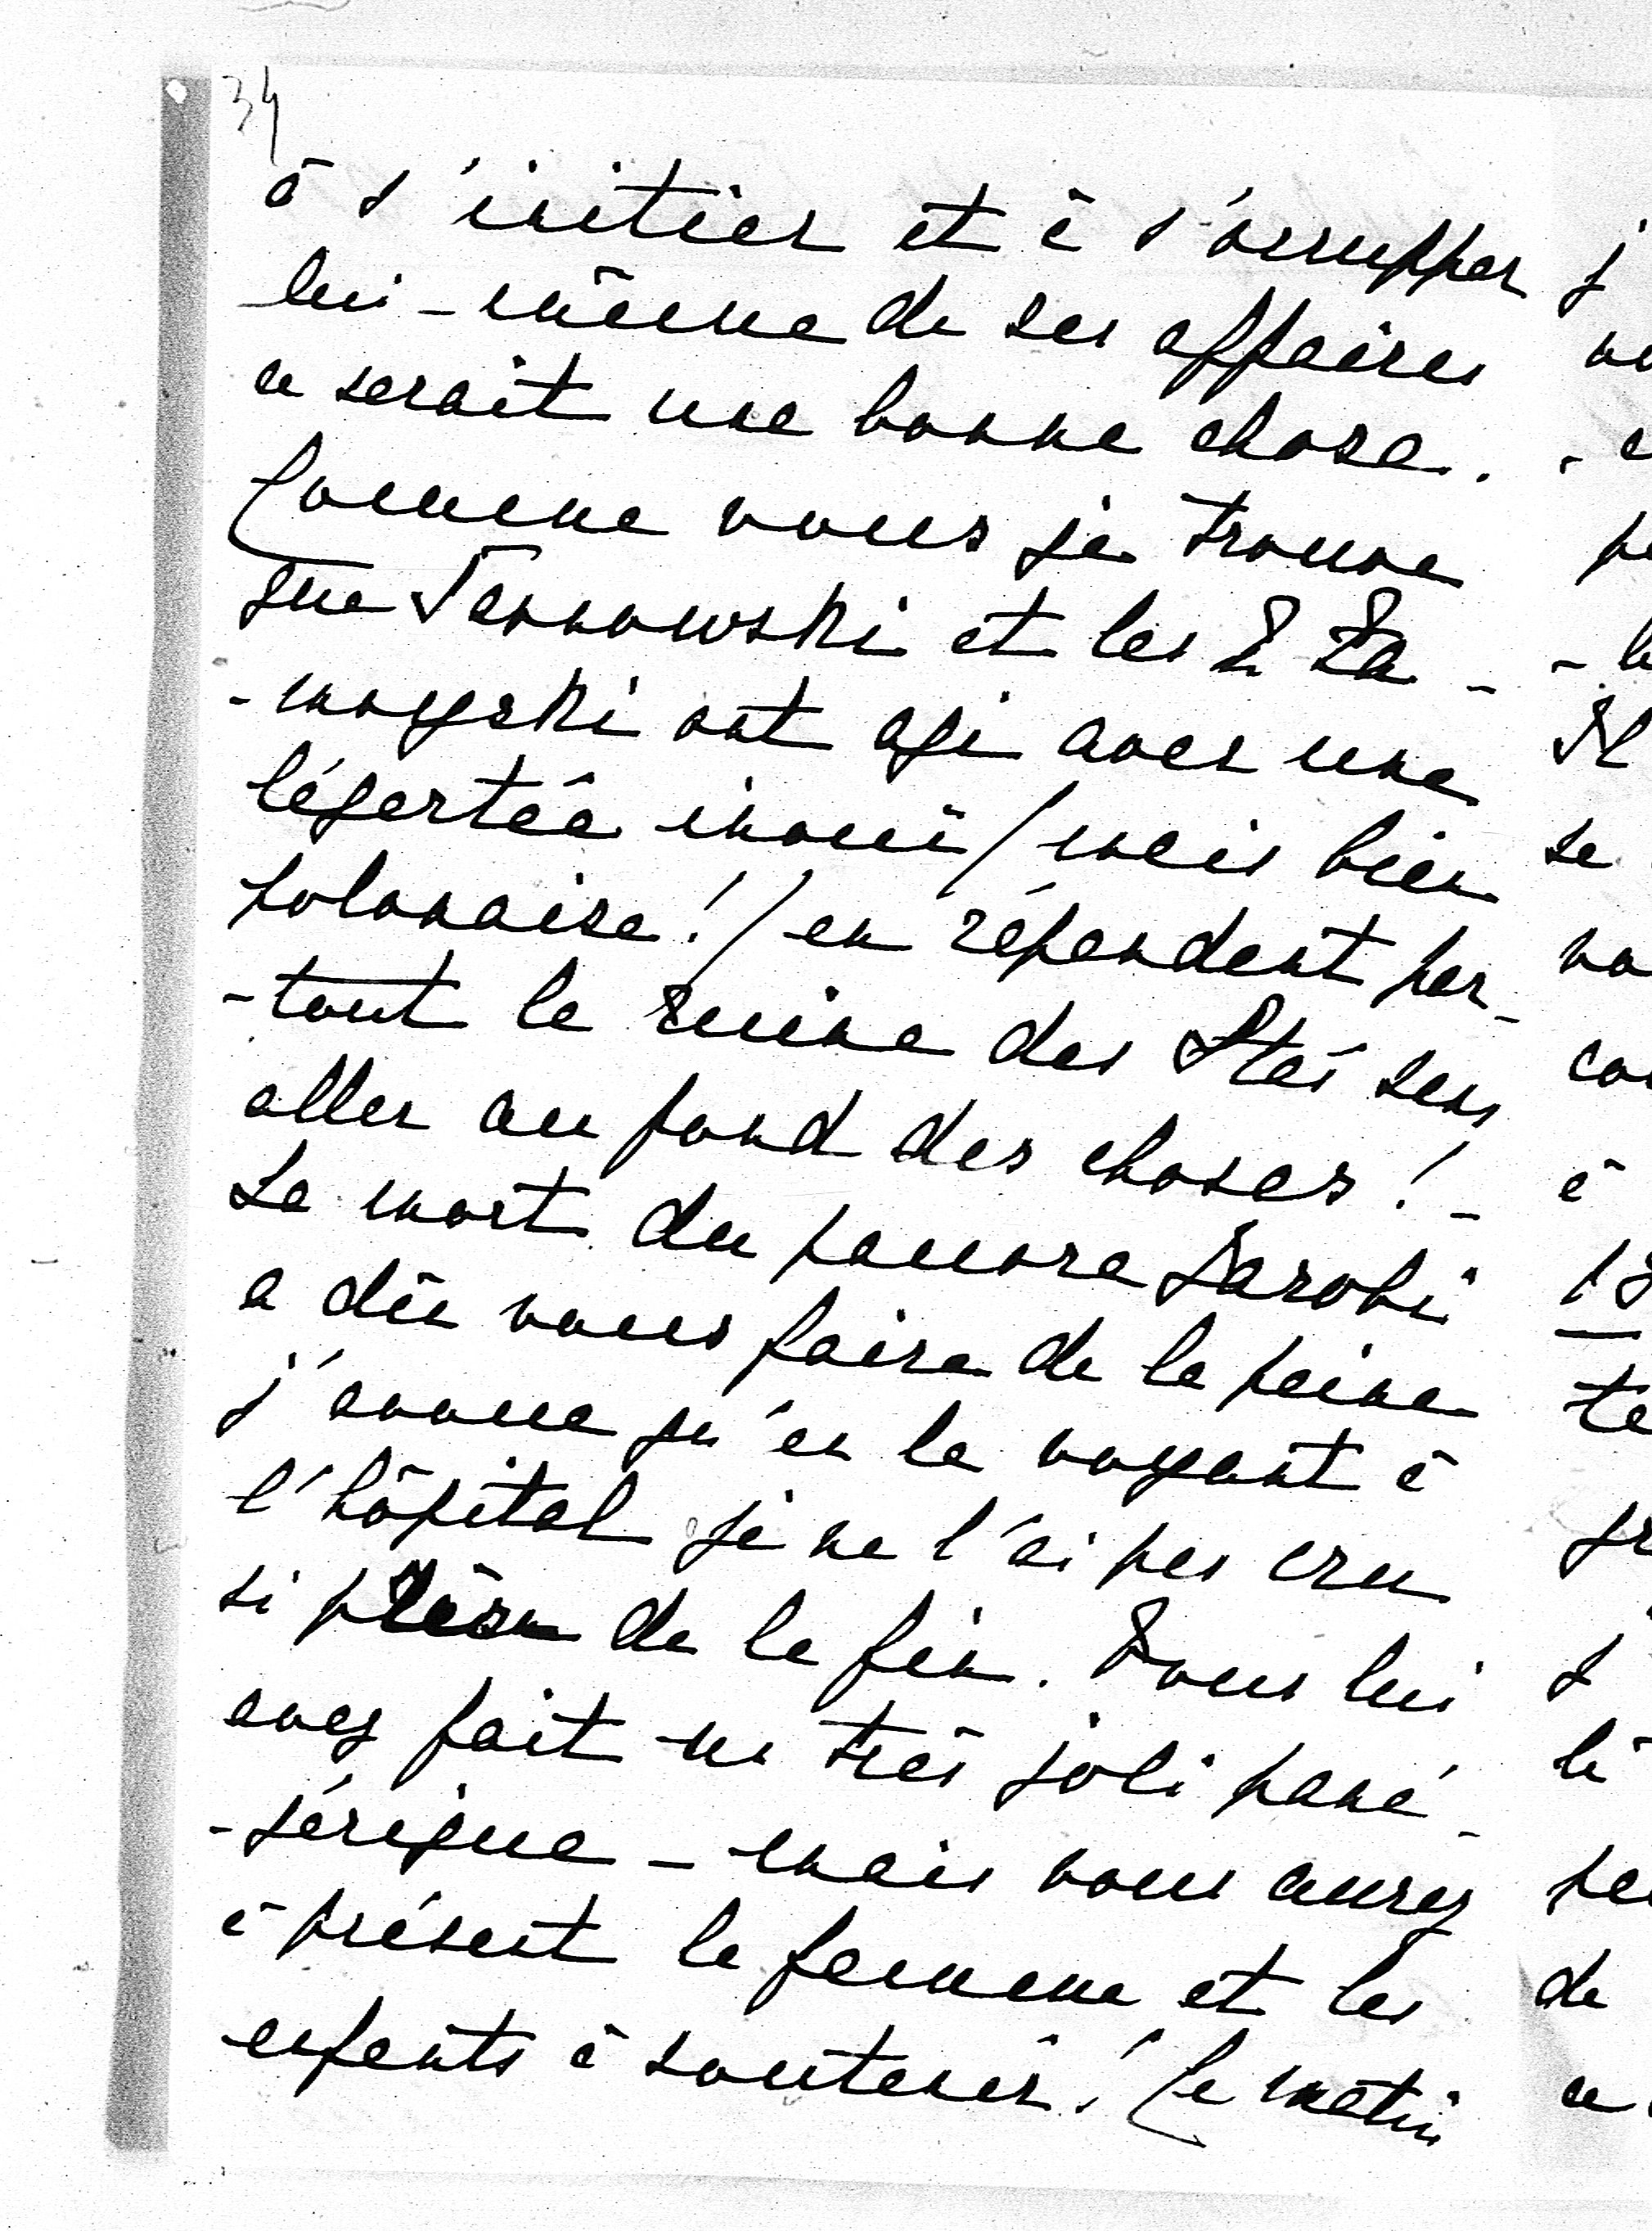 34
à s'initier et à s'occupper
lui-même de ses affaires
ce serait une bonne chose.
Comme vous je trouve
que Tarnowski et les 2 Za-
-moyski ont agi avec une
légertée inouï / mais bien
polonaise! / en répendent par-
-tout la ruine des Ptés sans
aller au fond des choses! -
La mort du pauvre Jarobi
a dû vous faire de la peine
j'avoue qu'en le voyant à
l'hôpital je ne l'ai pas cru
si près de la fin. Vous lui
avez fait un très joli pané-
-gérique - mais vous aurez
à présent la femme et les
enfants à soutenir! Ce matin